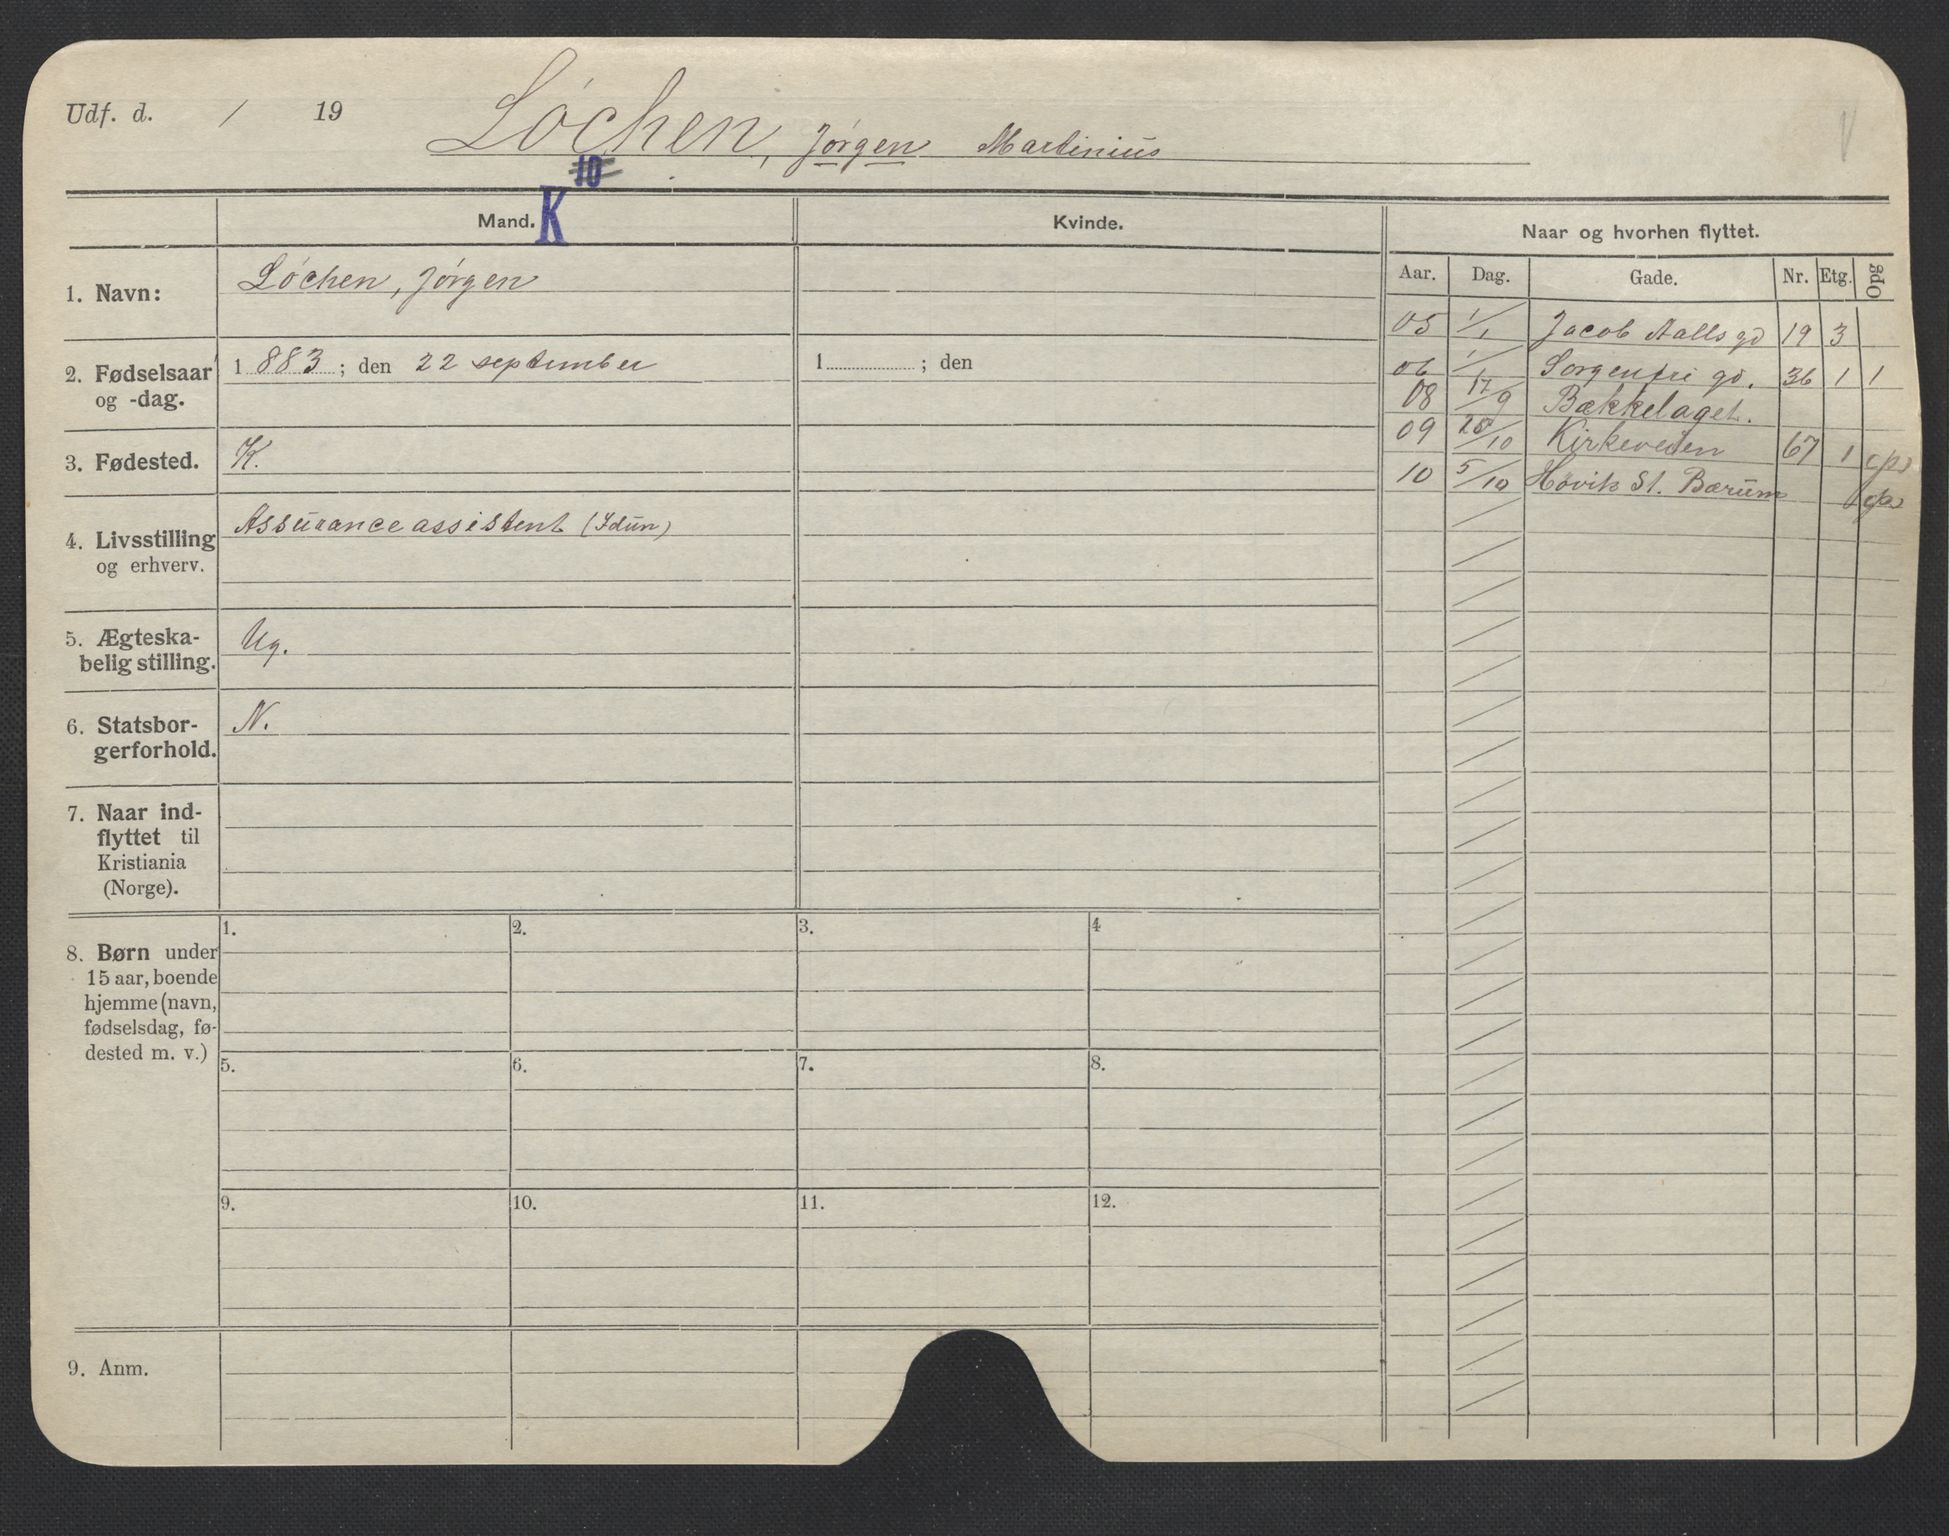 Udf. d. / 19
Lóchen, Jórgen Martinius
10
K
Mand.
Kvinde.
Naar og hvorhen flyttet.
Aar. Dag. Gade. Nr. Etg. Opg
1. Navn:
Lóchen, Jórgen
2. Fødselsaar
og -dag.
1883; den 22 september
1 ; den
3. Fødested.
K.
4. Livsstilling
og erhverv.
Assuranceassistent (Idun)
5. Ægteska-
belig stilling.
Ug.
6. Statsbor-
gerforhold.
N.
7. Naar ind-
flyttet til
Kristiania
(Norge).
8. Børn under
15 aar, boende
hjemme (navn,
fødselsdag, fø-
dested m. v.)
1. 2. 3. 4
5. 6. 7. 8.
9. 10. 11. 12.
9. Anm.
05 1/1 Jacob Aalls gd 19 3
06 1/1 Sorgenfri gd. 36 1 1
08 17/9 Bækkelaget.
09 /10 Kirkeveien 67 1
10 5/10 Hóvik St. Bærum